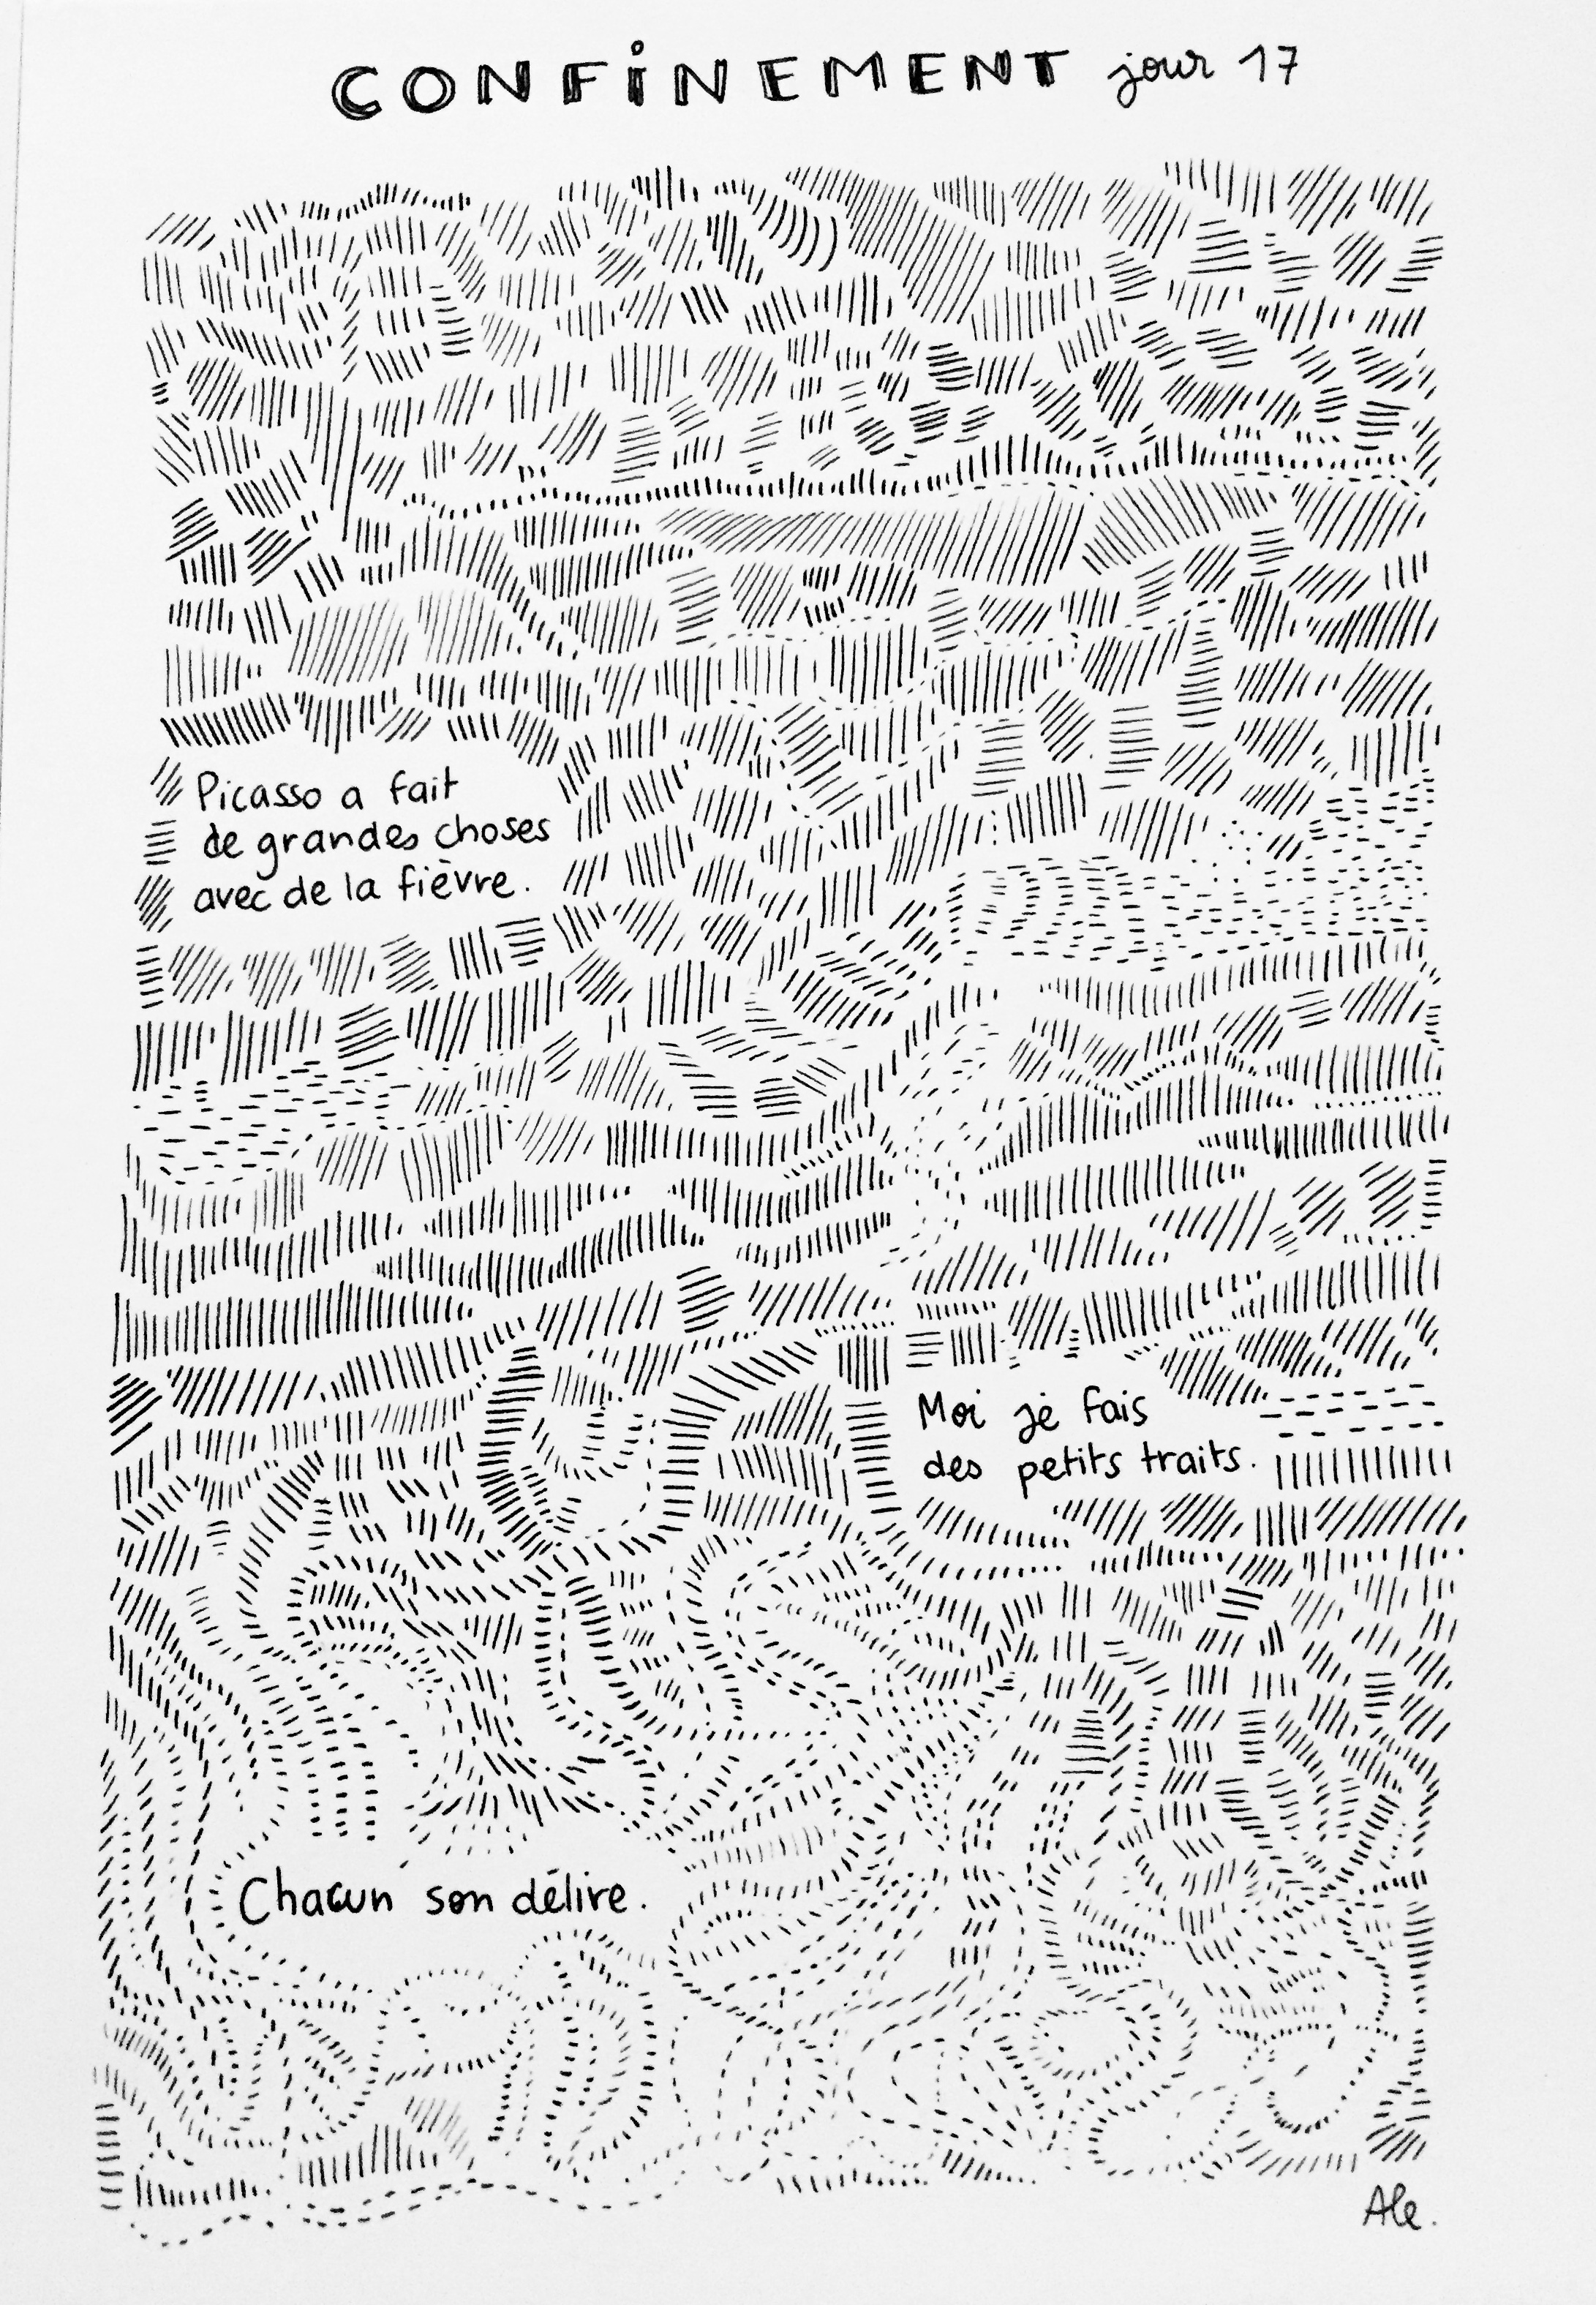 CONFiNEMENT jour 17
Picasso a fait
de grandes choses
avec de la fièvre.
Moi je fais
des petits traits.
Chacun son délire.
Ale.